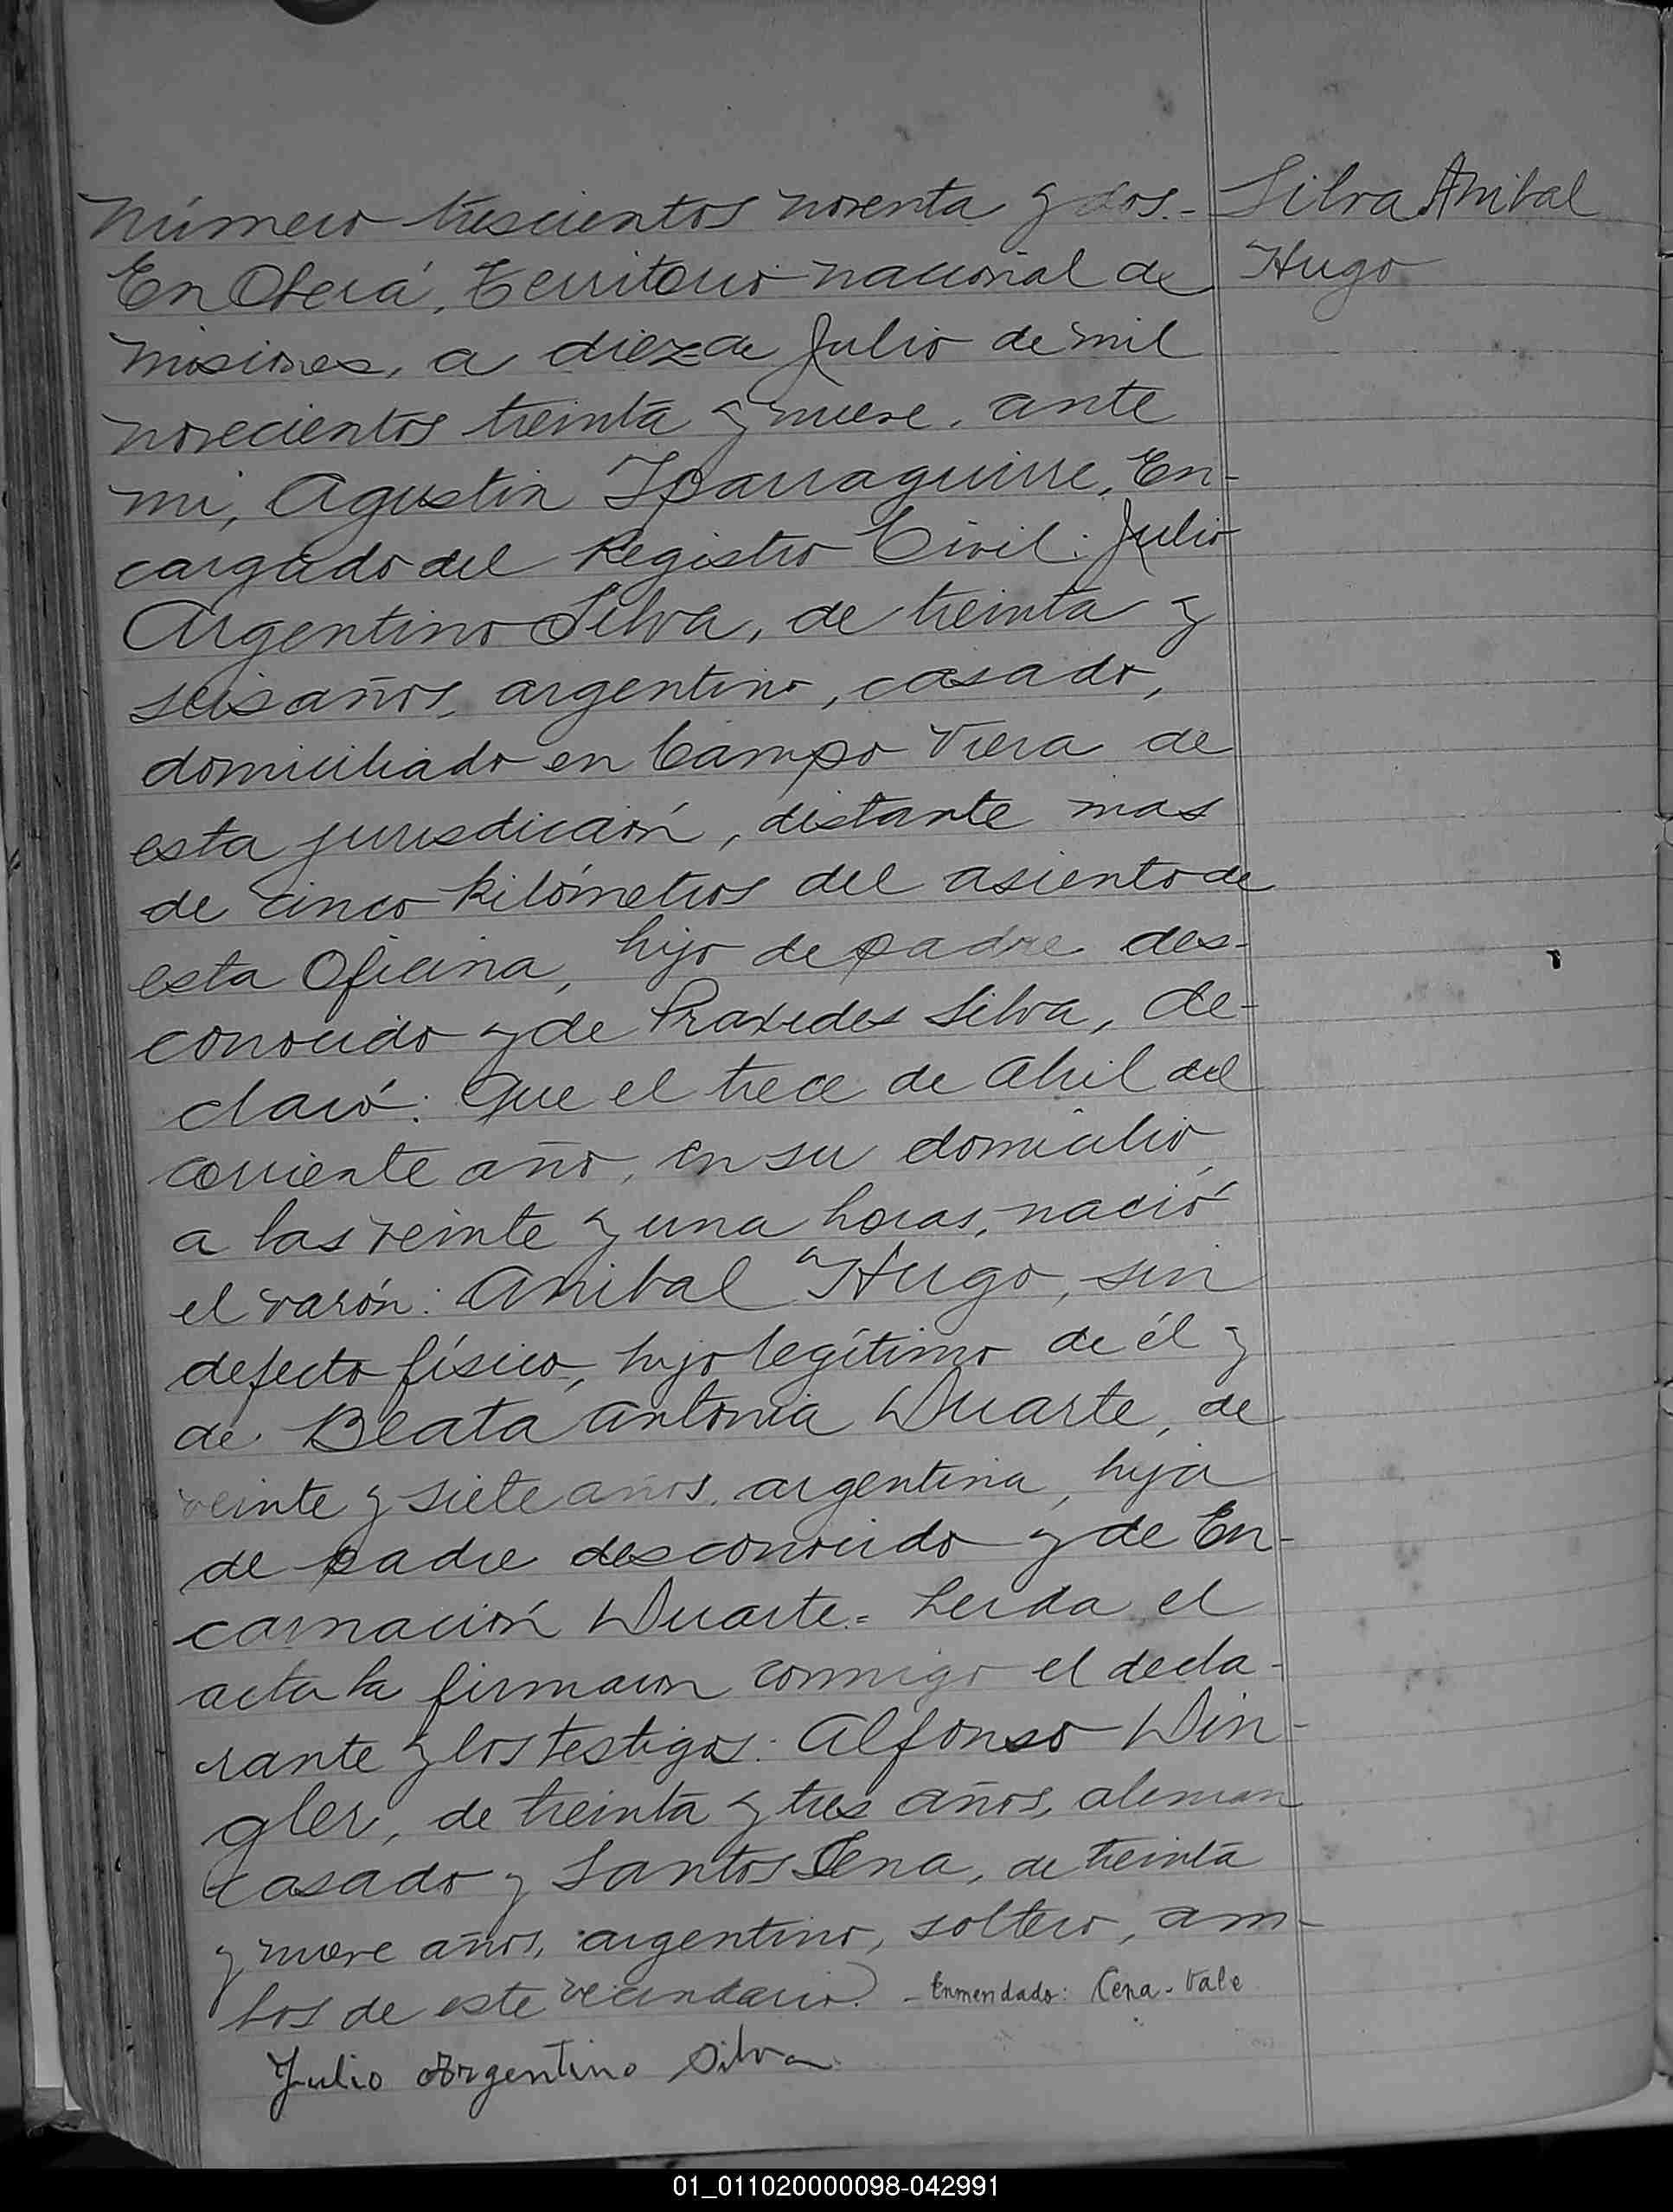 Número trescientos noventa y dos.-
Silva Anibal
Hugo
En Oberá, Territorio nacional de
Misiones, a diez de Julio de mil
novecientos treinta y nueve, ante
mi, Agustin Iparraguirre, En-
cargado del Registro Civil: Julio
Argentino Silva, de treinta y
seis años, argentino, casado,
domiciliado en Campo Viera de
esta jurisdicción, distante mas
de cinco kilómetros del asiento de
esta Oficina, hijo de padre des-
conocido y de Praxedes Silva, de-
claró: Que el trece de Abril del
corriente año, en su domicilio,
a las veinte y una horas, nació
el varón: Anibal Hugo, sin
defecto físico, hijo legítimo de él y
de Beata Antonia Duarte, de
veinte y siete años, argentina, hija
de padre desconocido y de En-
carnación Duarte.= Leida el
acta la firmaron conmigo el decla-
rante y los testigos: Alfonso Win-
gler, de treinta y tres años, aleman
casado y Santos Cena, de treinta
y nueve años, argentino, soltero, am-
bos de este vecindario. - Enmendado: Cena - Vale
Julio Argentino Silva
01_011020000098-042991